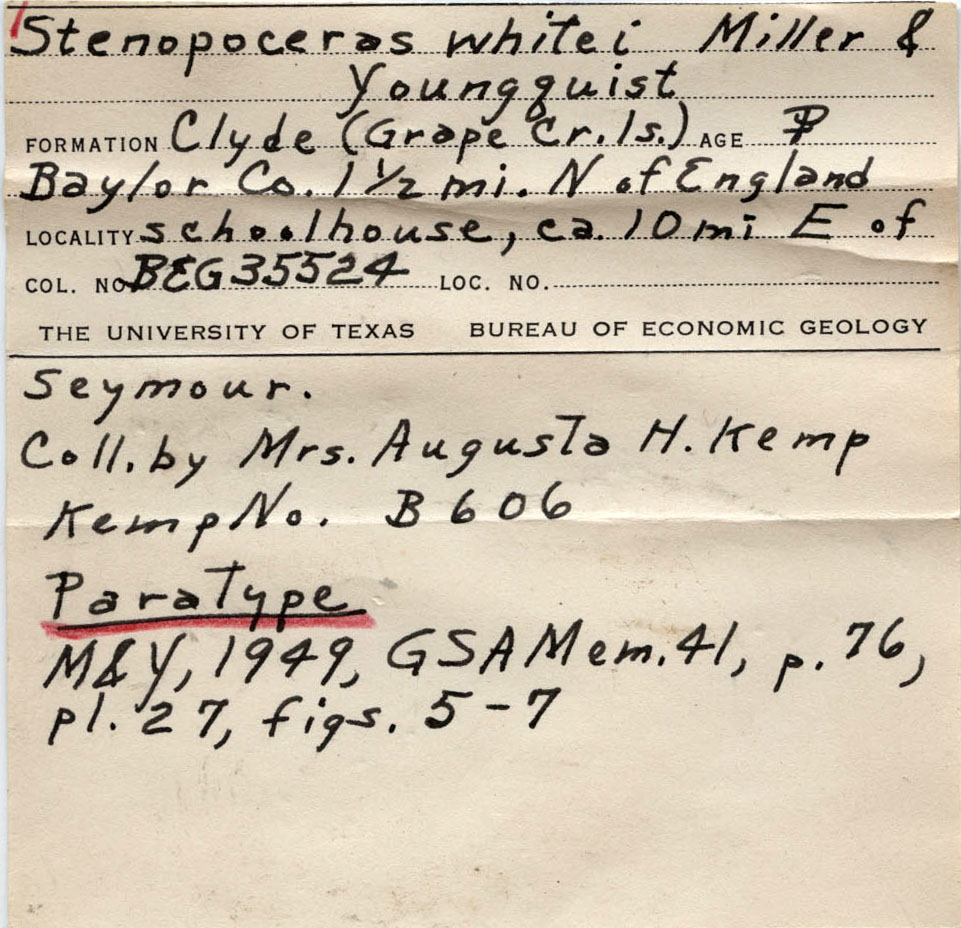 Stenopoceras whitei Miller &
Youngquist
FORMATION Clyde (Grape Cr. ls.) AGE P
Baylor Co. 1 1/2 mi. N of England
LOCALITY schoolhouse, ca. 10 mi E of
COL. NO. BEG35524 LOC. NO.
THE UNIVERSITY OF TEXAS BUREAU OF ECONOMIC GEOLOGY
Seymour.
Coll. by Mrs. Augusta H. Kemp
Kemp No. B606
Paratype
M&Y, 1949, GSA Mem. 41, p. 76,
pl. 27, figs. 5-7